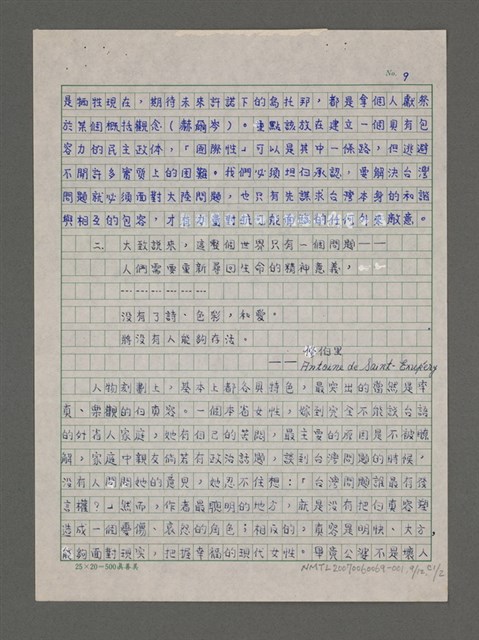 No. 9
是犧牲現在，期待未來許諾下的烏托邦，都是拿個人獻祭
於某個概括觀念（赫爾岑）。重點該放在建立一個具有包
容力的民主政体，「國際性」可以是其中一條路，但逃避
不開許多實質上的困難。我們必須坦白承認，要解決台灣
問題就必須面對大陸問題，也只有先謀求台灣本身的和諧
與相互的包容，才有力量對抗 的任何外來敵意。
二、大致說來，這整個世界只有一個問題——
人們需要重新尋回生命的精神意義，
没有了詩、色彩，和愛。
將没有人能夠存活。
修伯里
——Antoine de Saint-Exupéry
人物刻劃上，基本上都各具特色，最突出的當然是率
真、樂觀的白真容。一個本省女性，嫁到完全不能談台語
的外省人家庭，她有自己的苦悶，最主要的原因是不被瞭
解，家庭中親友倘若有政治話題，談到台灣問題的時候，
没有人問問她的意見，她忍不住想：「台灣問題誰最有發
言權？」然而，作者最聰明的地方，就是没有把白真容塑
造成一個憂傷、哀怨的角色；相反的，真容是明快、大方，
能夠面對現實，把握幸福的現代女性。畢竟公婆不是壞人
25×20=500 真善美
NMTL20070060069-001, 9/12, C1/2